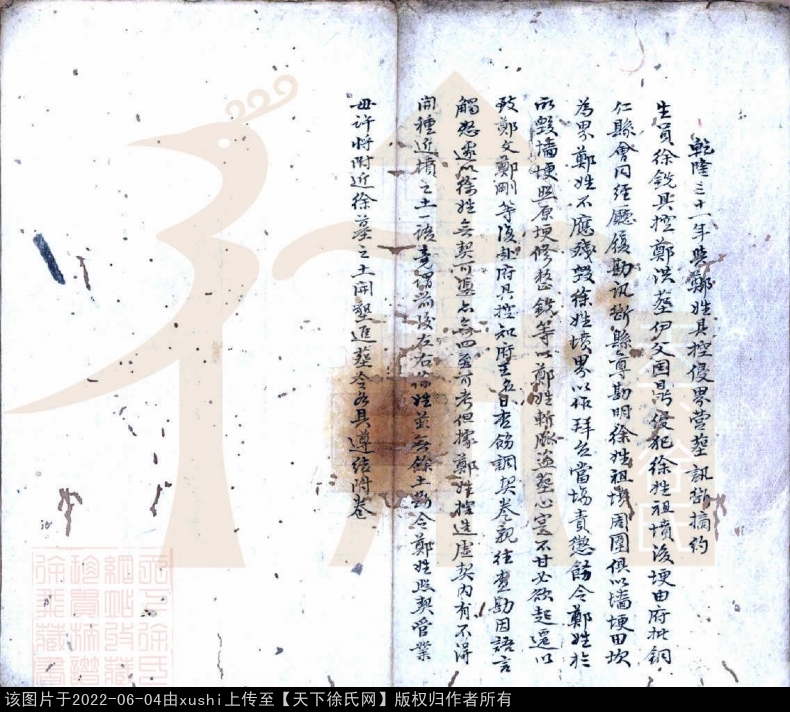 乾隆三十一年與鄭姓具控侵界營塟訊斷摘約
生員徐銑具控鄭洪塟伊父因鼎侵犯徐姓祖墳後埂由府批銅
仁縣會同經廳復勘訊斷縣主勘明徐姓祖墳周圍俱以墻埂田坎
為界鄭姓不應殘毀徐姓墳界以作拜台當塲責懲飭令鄭姓於
所毀墻埂照原埂修整銑等以鄭姓斬脈盜塟心寔不甘必欲起遷以
致鄭文鄭剛等復赴府具控知府王名日杏飭調契卷親往查勘因語言
觸怒遂以徐姓無契可憑亦無四至可考但據鄭姓控造虛契內有不得
開種近墳之土一語竟謂前後左右徐姓並無餘土斷令鄭姓照契管業
毋許將附近徐墓之土開墾進塟令各具遵結附卷
该图片于2022-06-04由xushi上传至【天下徐氏网】版权归作者所有